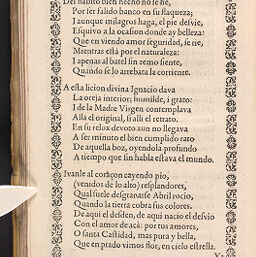 Del habito bien hecho no se fie,
Por ser salido banco en su flaqueza;
I aunque milagros haga, el pie desvie,
Esquivo a la ocasion donde ay belleza:
Que en viendo amor seguridad, se rie,
Mientras està por el naturaleza:
I apenas al batel sin remo siente,
Quando se lo arrebata la corriente.
A esta licion divina Ignacio dava
La oreja interior; humilde, i grato:
I de la Madre Virgen contemplava
Allà el original, si allì el retrato.
En su relox devoto aun no llegava
A ser minuto el bien cumplido rato
De aquella boz, oyendola profundo
A tiempo que sin habla estava el mundo.
Ivanle al coraçon cayendo pio,
(venidos de lo alto) resplandores,
Qual suele desgranarse Abril rocio,
Quando la tierra cobra sus colores.
De aqui el desden, de aqui nacio el desvio
Con el amor de acà: por tus amores,
O santa Castidad, mas pura y bella,
Que en prado vimos flor, en cielo estrella.